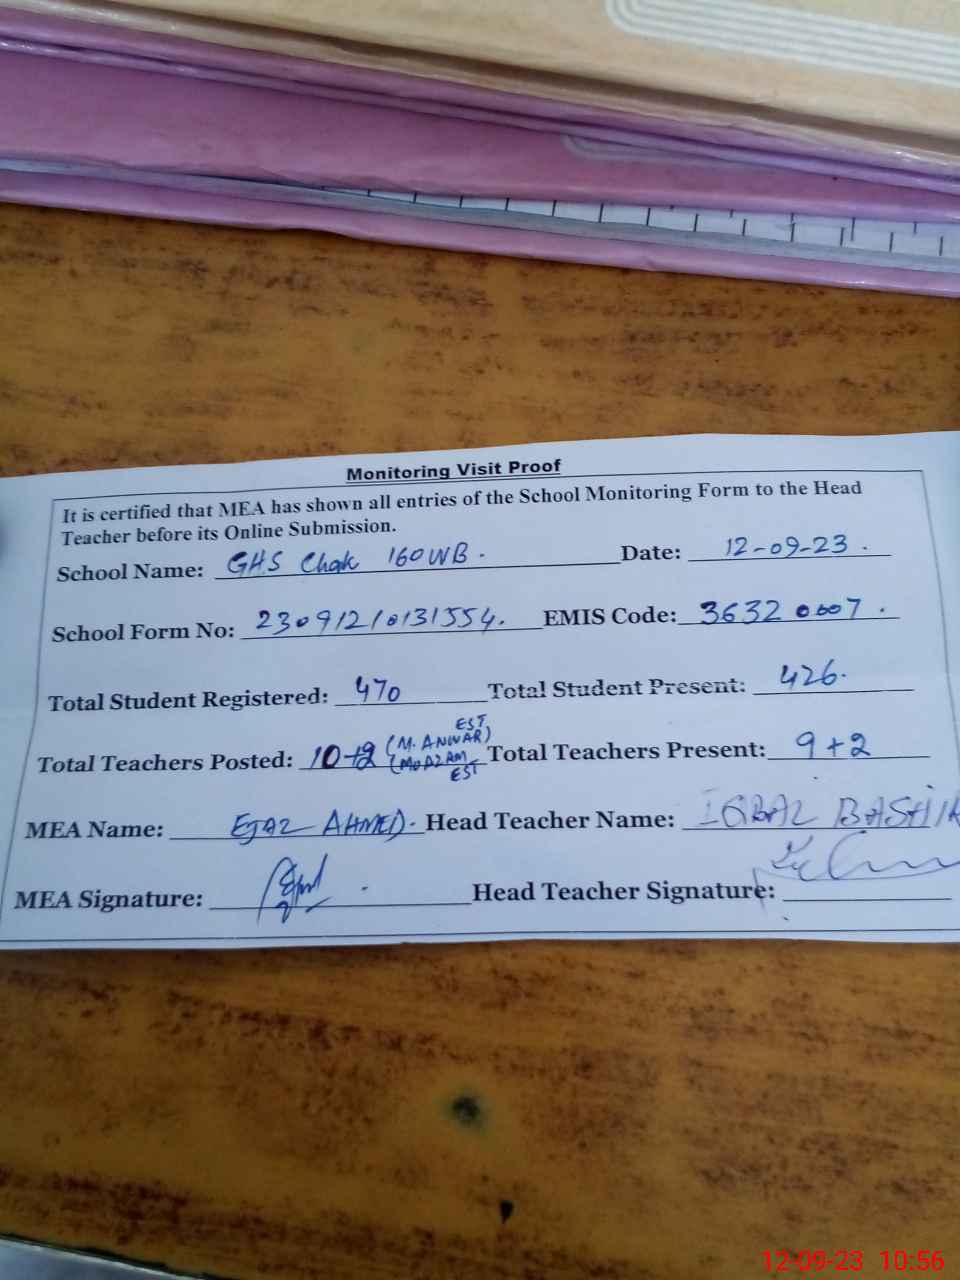 Monitoring Visit Proof
It is certified that MEA has shown all entries of the School Monitoring Form to the Head
Teacher before its Online Submission.
School Name: GHS Chak 160WB. Date: 12-09-23.
School Form No: 23091210131554. EMIS Code: 36320007.
Total Student Registered: 470 Total Student Present: 426.
Total Teachers Posted: 10+2 (M. ANWAR) EST (MOAZAM EST Total Teachers Present: 9+2
MEA Name: EJAZ AHMED. Head Teacher Name: IQBAL BASHIR
MEA Signature: Head Teacher Signature:
12-09-23 10:56